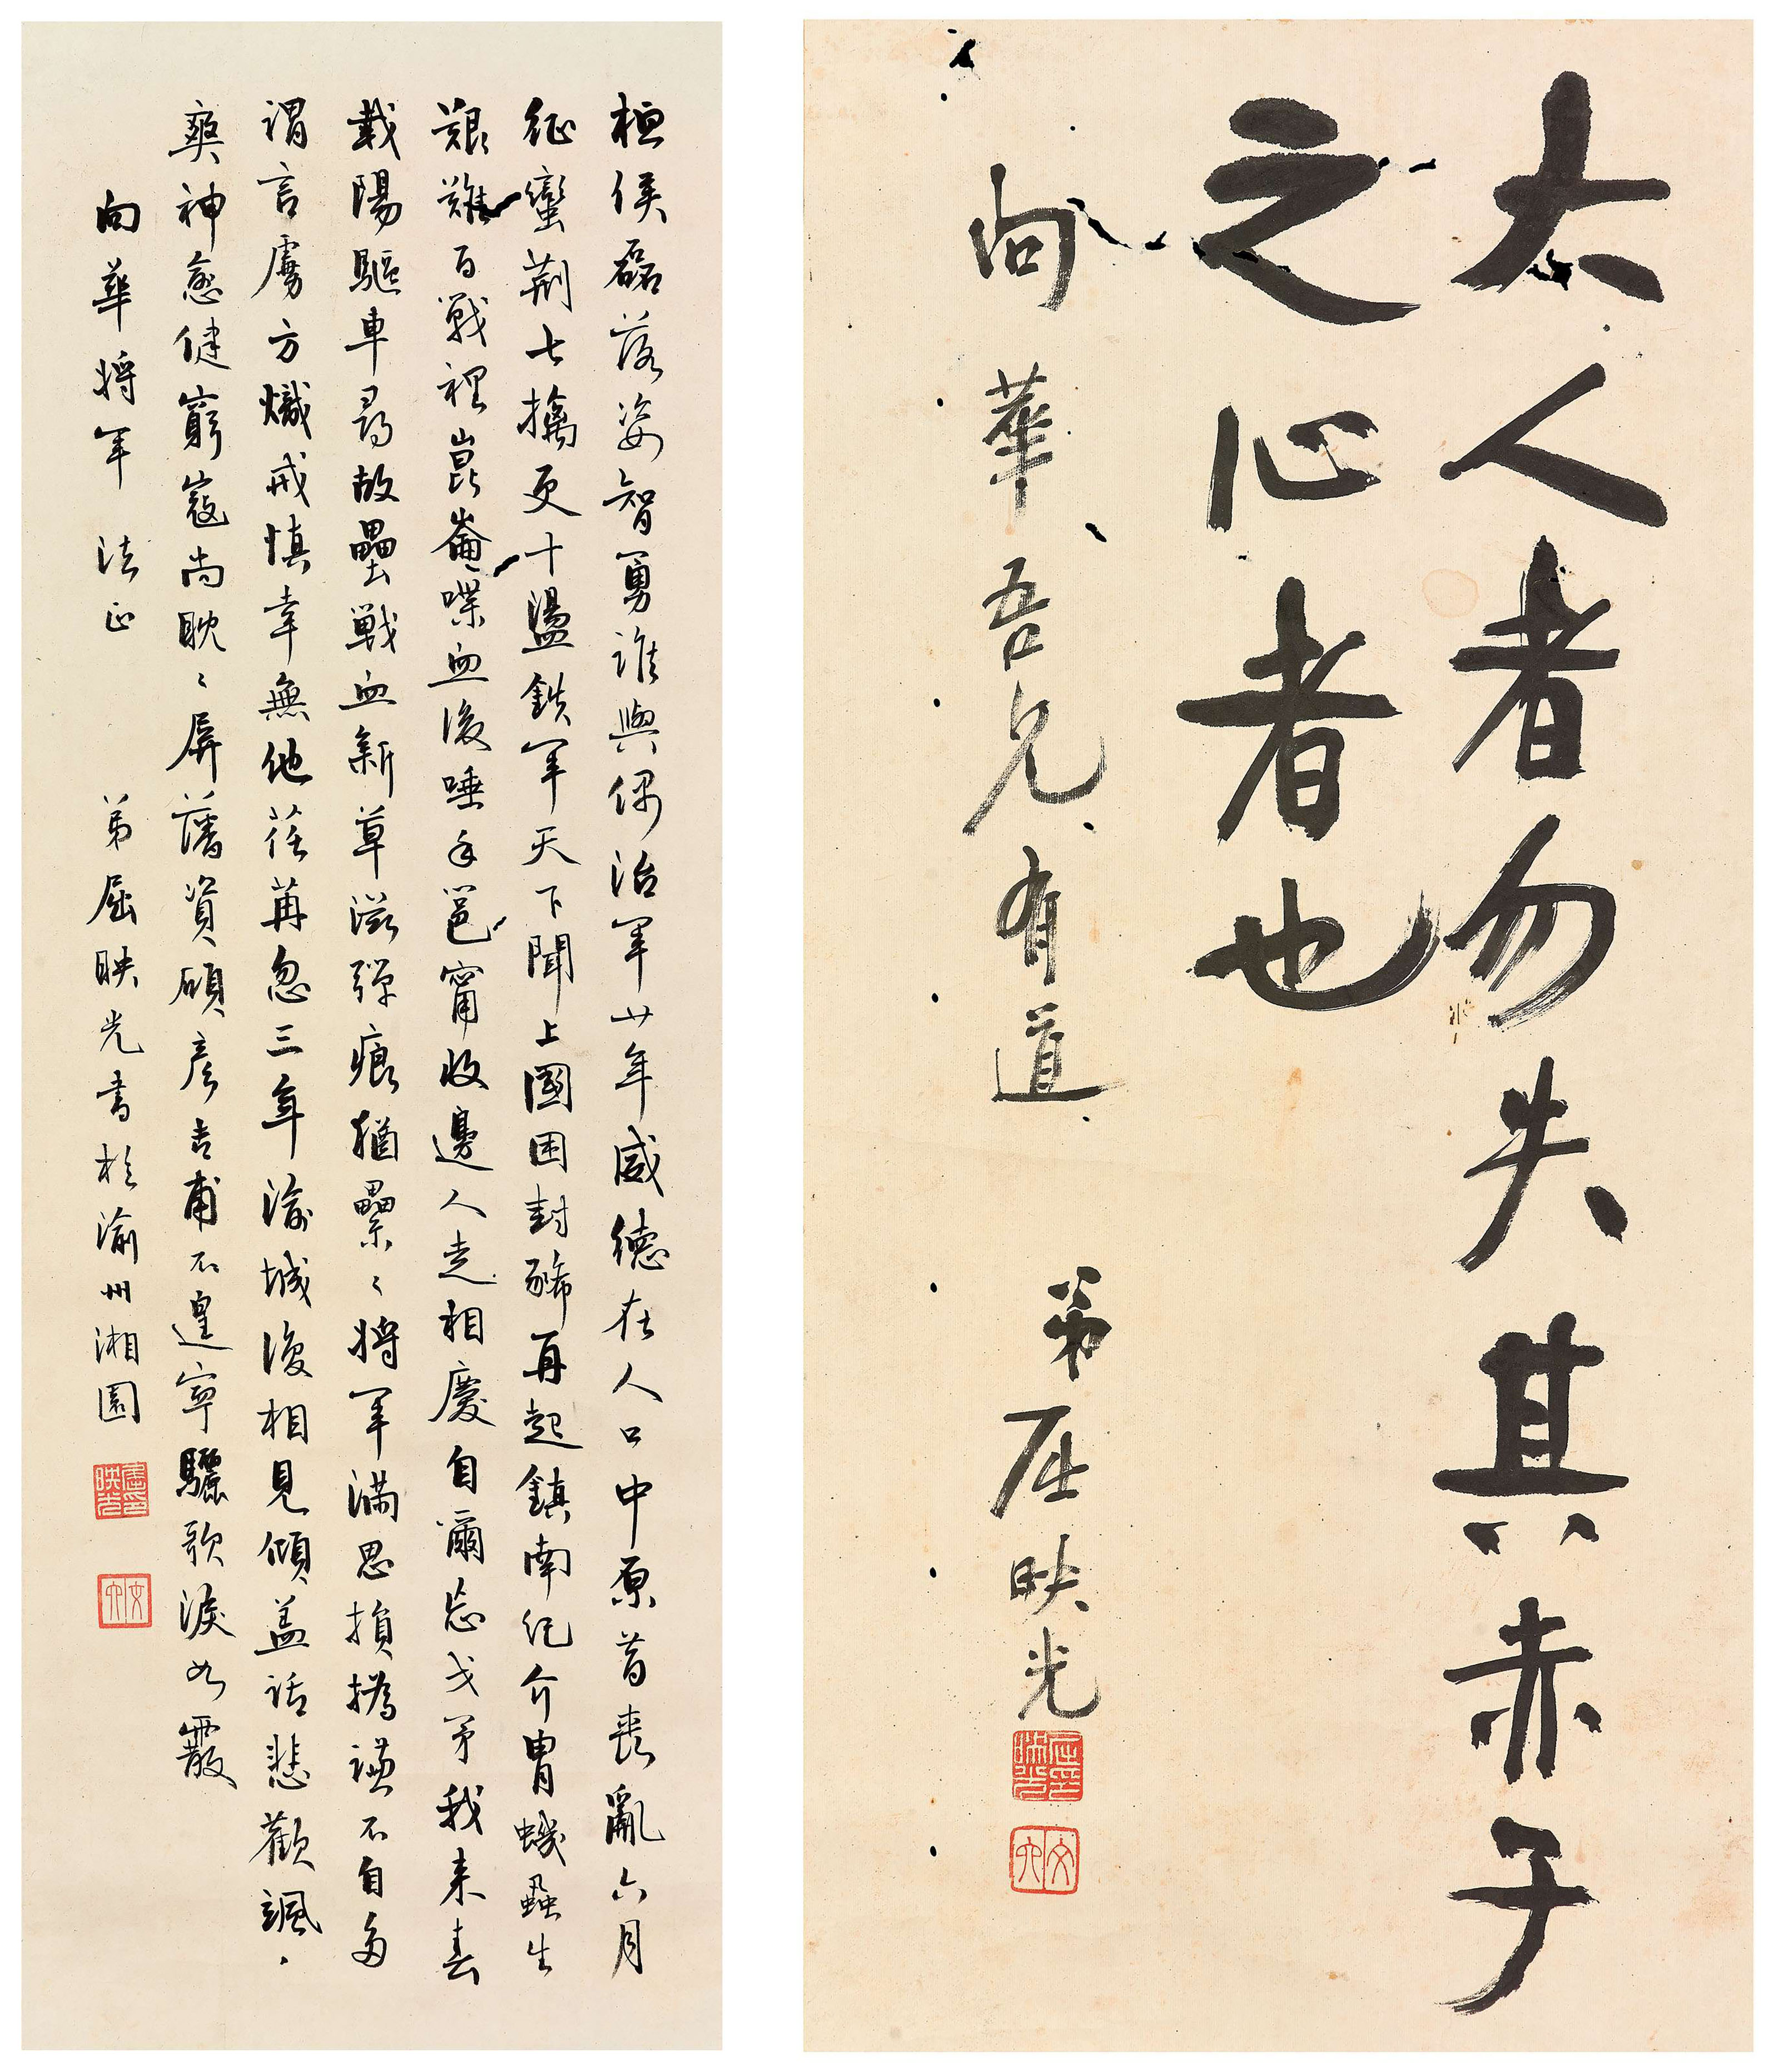 大人者勿失其赤子
之心者也
向華吾兄有道
弟屈映光
屈映光印
文六
桓侯磊落姿智勇誰與偶治軍廿年威德在人口中原昔喪亂六月
征蠻荊七擒更十盪鉄軍天下聞上國困封豨再起鎮南紀介胄蟣蝨生
艱難百戰裡崑崙喋血後唾手邕甯收邊人走相慶自爾忘戈矛我来春
載陽驅車尋故壘戰血新草滋彈痕猶纍々將軍滿思損撝謙不自多
謂言虜方熾戒慎幸無他荏苒忽三年渝城復相見傾盖話悲歡颯々
爽神愈健窮寇尚眈々屏藩資碩彥吉甫不遑寧驪歌淚如霰
向華將軍 法正 弟屈映光書於渝州湘園
屈印映光
文六